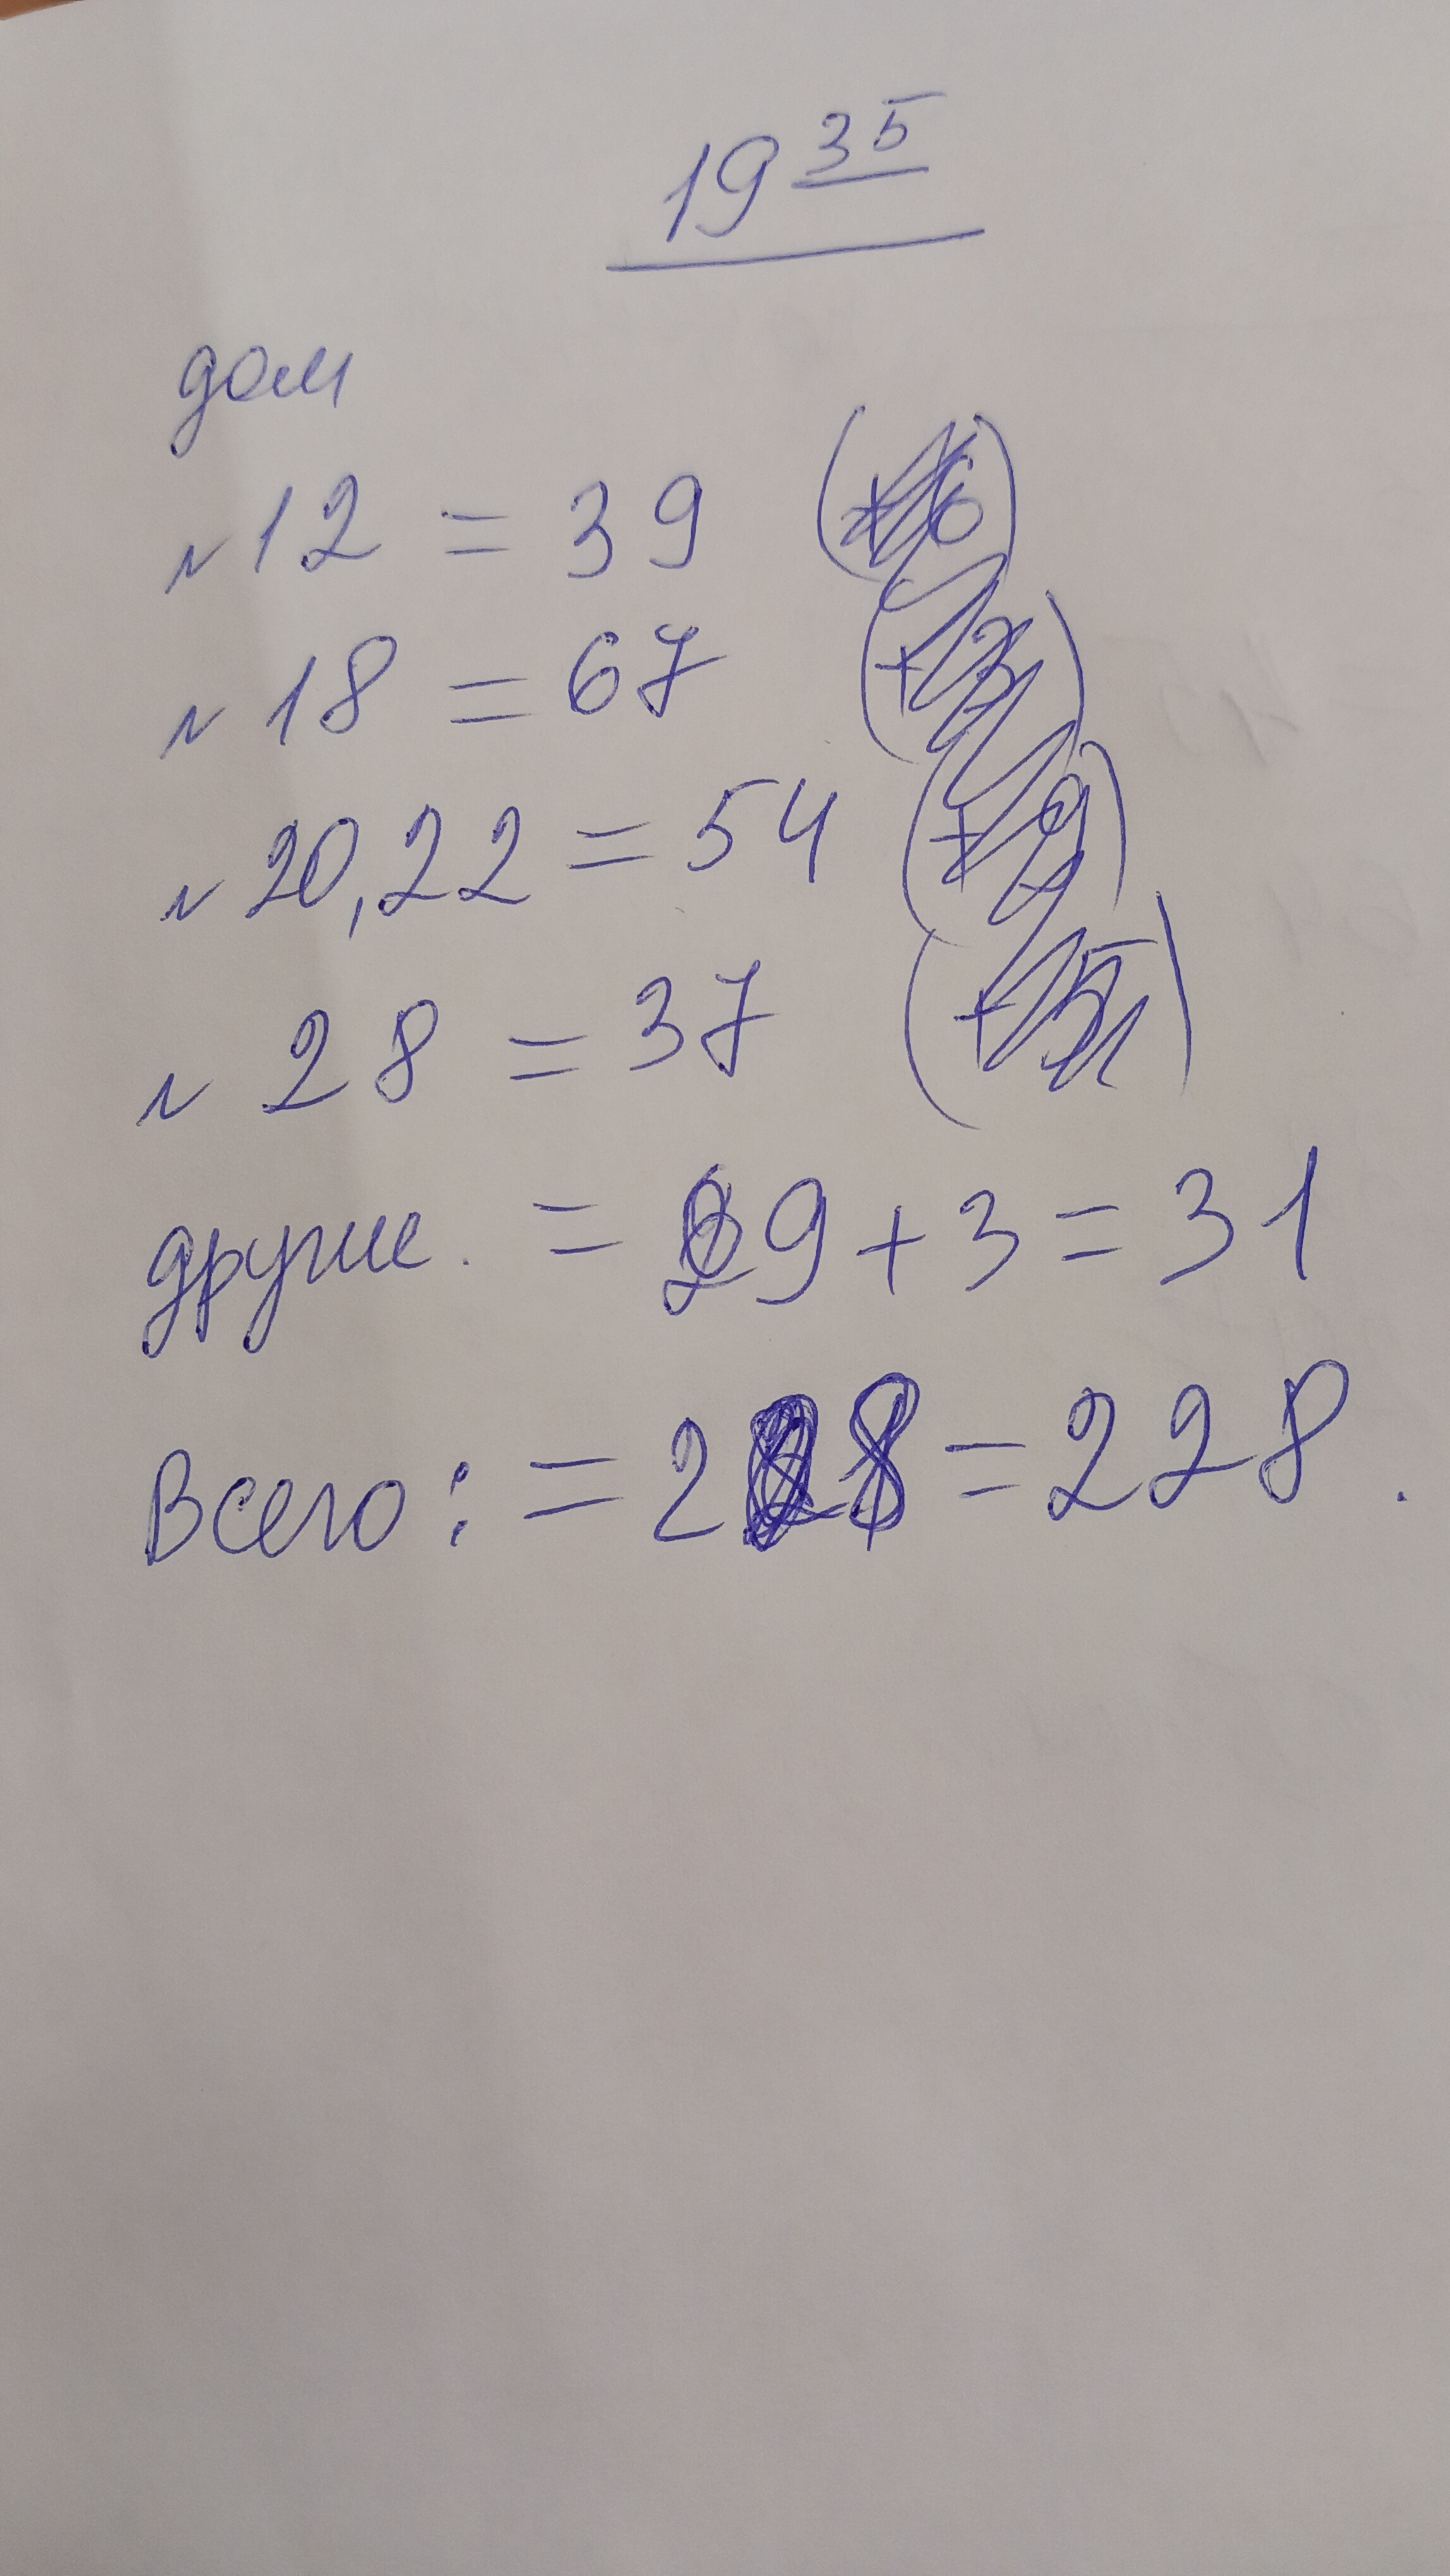 19 35
дом
ν 12 = 39
ν 18 = 67
ν 20,22 = 54
ν 28 = 37
другие. = 29 + 3 = 31
Всего: = 228 = 228.